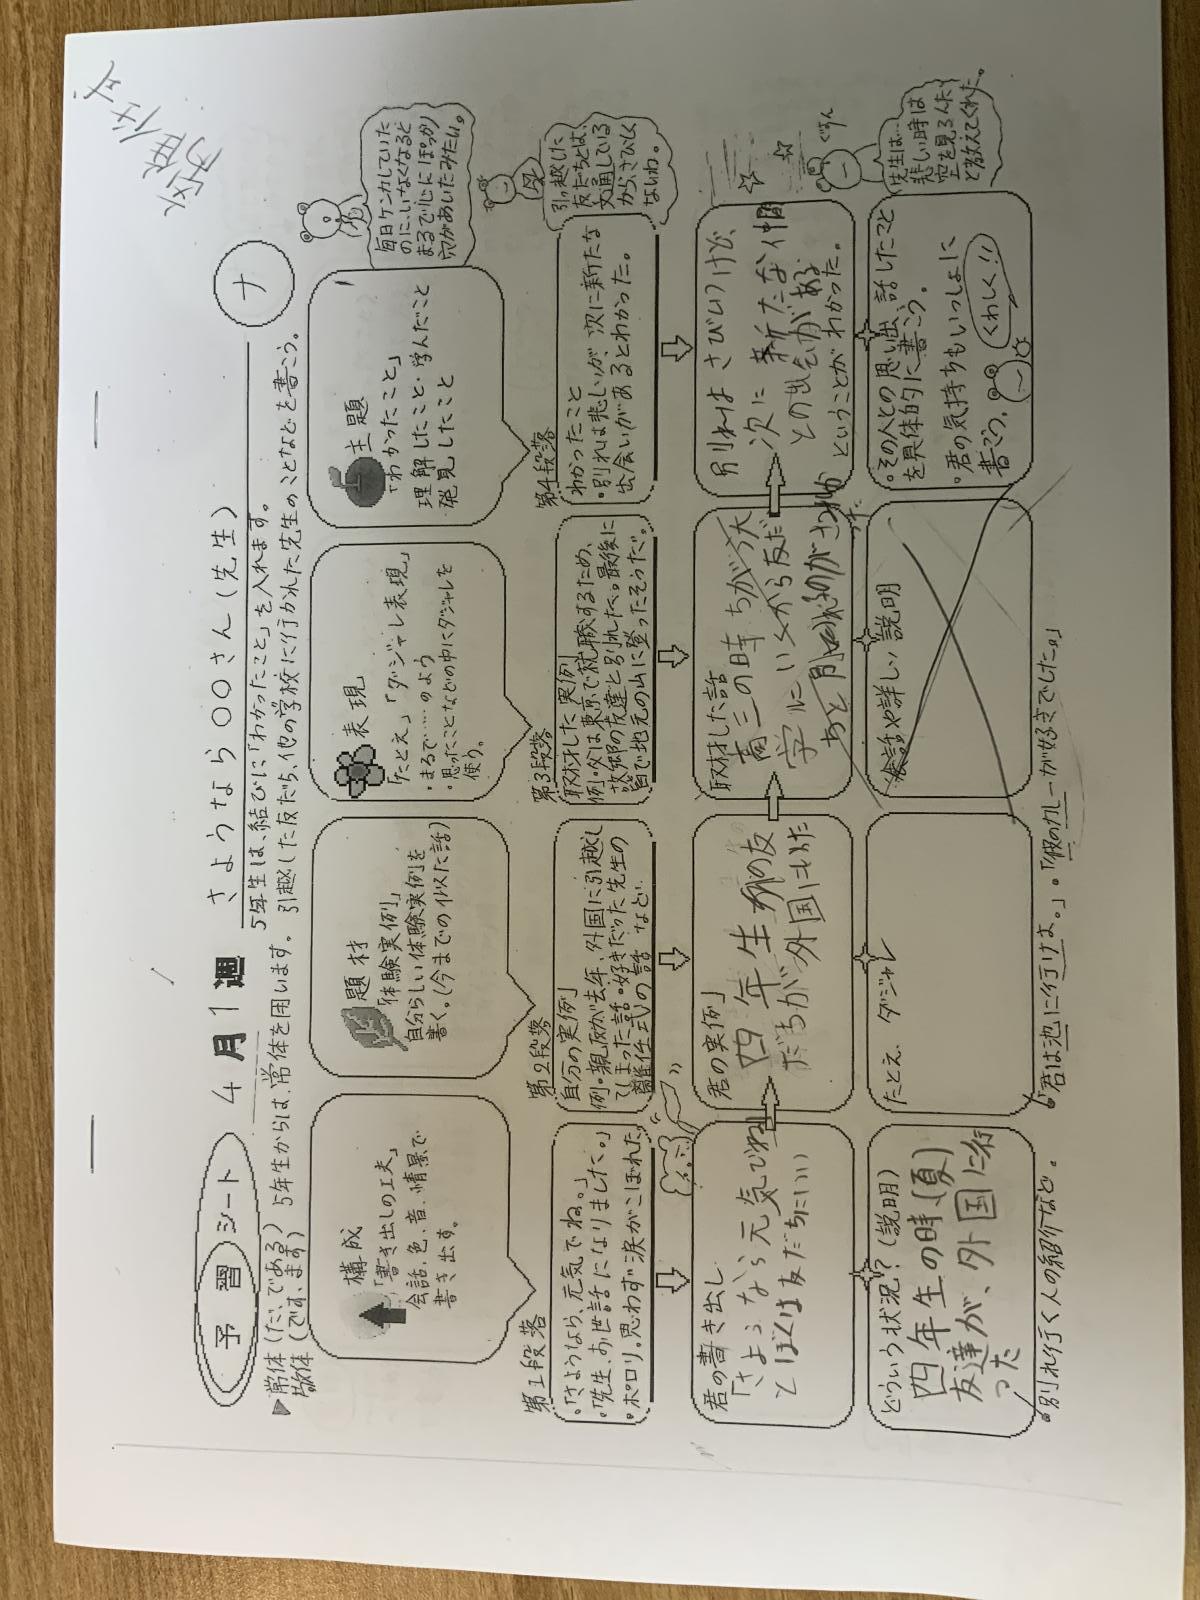 予習シート 4月1週 さようなら○○さん(先生) ナ
▶常体(だ、である) 5年生からは、常体を用います。
敬体(です、ます)
5年生は、結びに「わかったこと」を入れます。
引越した友だち、他の学校に行かれた先生のことなどを書こう。
構成
「書き出しの工夫」
会話、色、音、情景で
書き出す。
題材
「体験実例」
自分らしい体験実例を
書く。(今までの似た話)
表現
「たとえ」「ダジャレ表現」
・まるで……のよう
・思ったことなどの中にダジャレを
使う。
主題
「わかったこと」
理解したこと・学んだこと
発見したこと
毎日ケンカしていた
のに、いなくなると
まるで心にぽっかり
穴があいたみたい。
第1段落
・「さようなら、元気でね。」
・「先生、お世話になりました。」
・ポロリ。思わず涙がこぼれた
第2段落
自分の実例
例・親友が去年、外国に引越し
てしまった話・好きだった先生の
離任式の話 など
第3段落
取材した実例
例・父は東京で就職するため、
故郷の友達と別れた。最後に
皆で地元の山に登ったそうだ。
第4段落
わかったこと
・別れは悲しいが、次に新たな
出会いがあるとわかった。
引っ越した
友だちとは、
文通している
から、さびしく
ないわ。
君の書き出し
「さような ら元気でね」
とぼくは友だちにいい
君の実例」
四年生の友
だちが外国に
取材した話
高三の時ちがう大
学にいくから友だ
ちと別れるのが
別れは さびしいけど、
次に 新たな仲間
との出会いがある
ということがわかった。
ぐすん
先生は…
悲しい時は
空を見るんだ
と教えてくれた。
どういう状況?(説明)
四年生の時、(夏)
友達が、外国に行
った
たとえ、ダジャレ
会話や詳しい説明
・その人との思い出、話したこと
を具体的に書こう。
・君の気持ちもいっしょに
書こう。
くわしく!!
・別れ行く人の紹介など。
・君は池に行けよ。」・「彼のカレーが好きでした。」